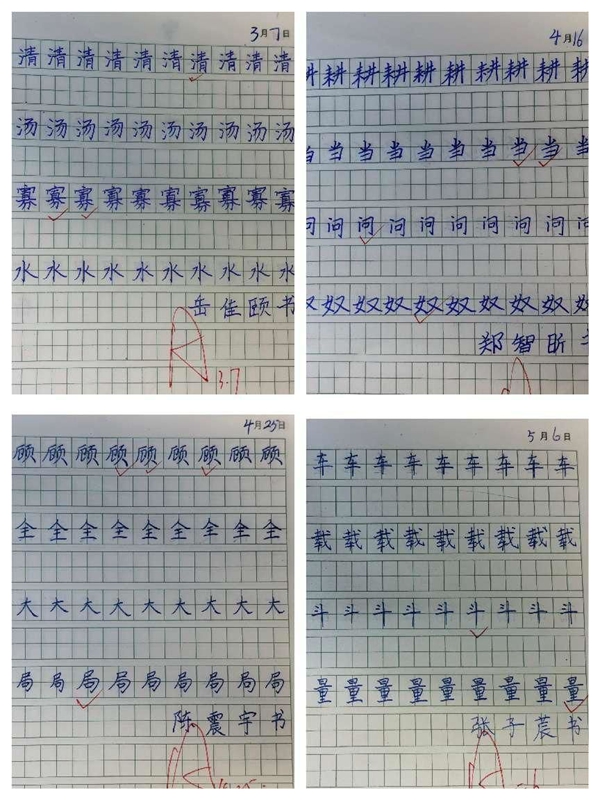 3月7日
清清清清清清清清清清
汤汤汤汤汤汤汤汤汤汤
寡寡寡寡寡寡寡寡寡寡
水水水水水水水水水水
岳佳颐书
3.7
4月16日
耕耕耕耕耕耕耕耕耕耕
当当当当当当当当当当
问问问问问问问问问问
奴奴奴奴奴奴奴奴奴奴
郑智昕
4月25日
顾顾顾顾顾顾顾顾顾
全全全全全全全全全
大大大大大大大大大
局局局局局局局局局
陈震宇书
5月6日
车车车车车车车车车
载载载载载载载载载
斗斗斗斗斗斗斗斗斗
量量量量量量量量量
张子书